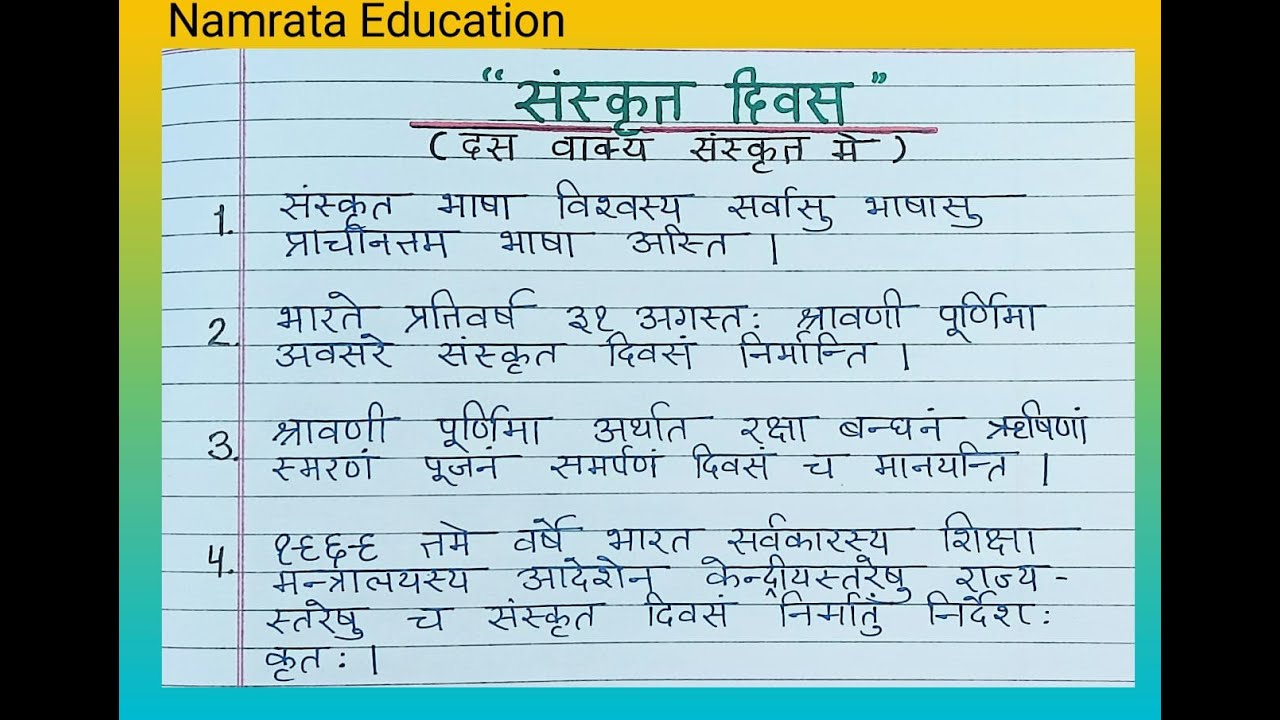 Namrata Education
“संस्कृत दिवस”
(दस वाक्य संस्कृत मे)
1. संस्कृत भाषा विश्वस्य सर्वासु भाषासु
प्राचीनतम भाषा अस्ति ।
2. भारते प्रतिवर्ष ३१ अगस्त: श्रावणी पूर्णिमा
अवसरे संस्कृत दिवसं निर्मान्ति ।
3. श्रावणी पूर्णिमा अर्थात रक्षा बन्धनं ऋषिणां
स्मरणं पूजनं समर्पणं दिवसं च मानयन्ति ।
4. १९६९ तमे वर्षे भारत सर्वकारस्य शिक्षा
मन्त्रालयस्य आदेशेन केन्द्रीयस्तरेषु राज्य -
स्तरेषु च संस्कृत दिवसं निर्मातुं निर्देश:
कृत: ।